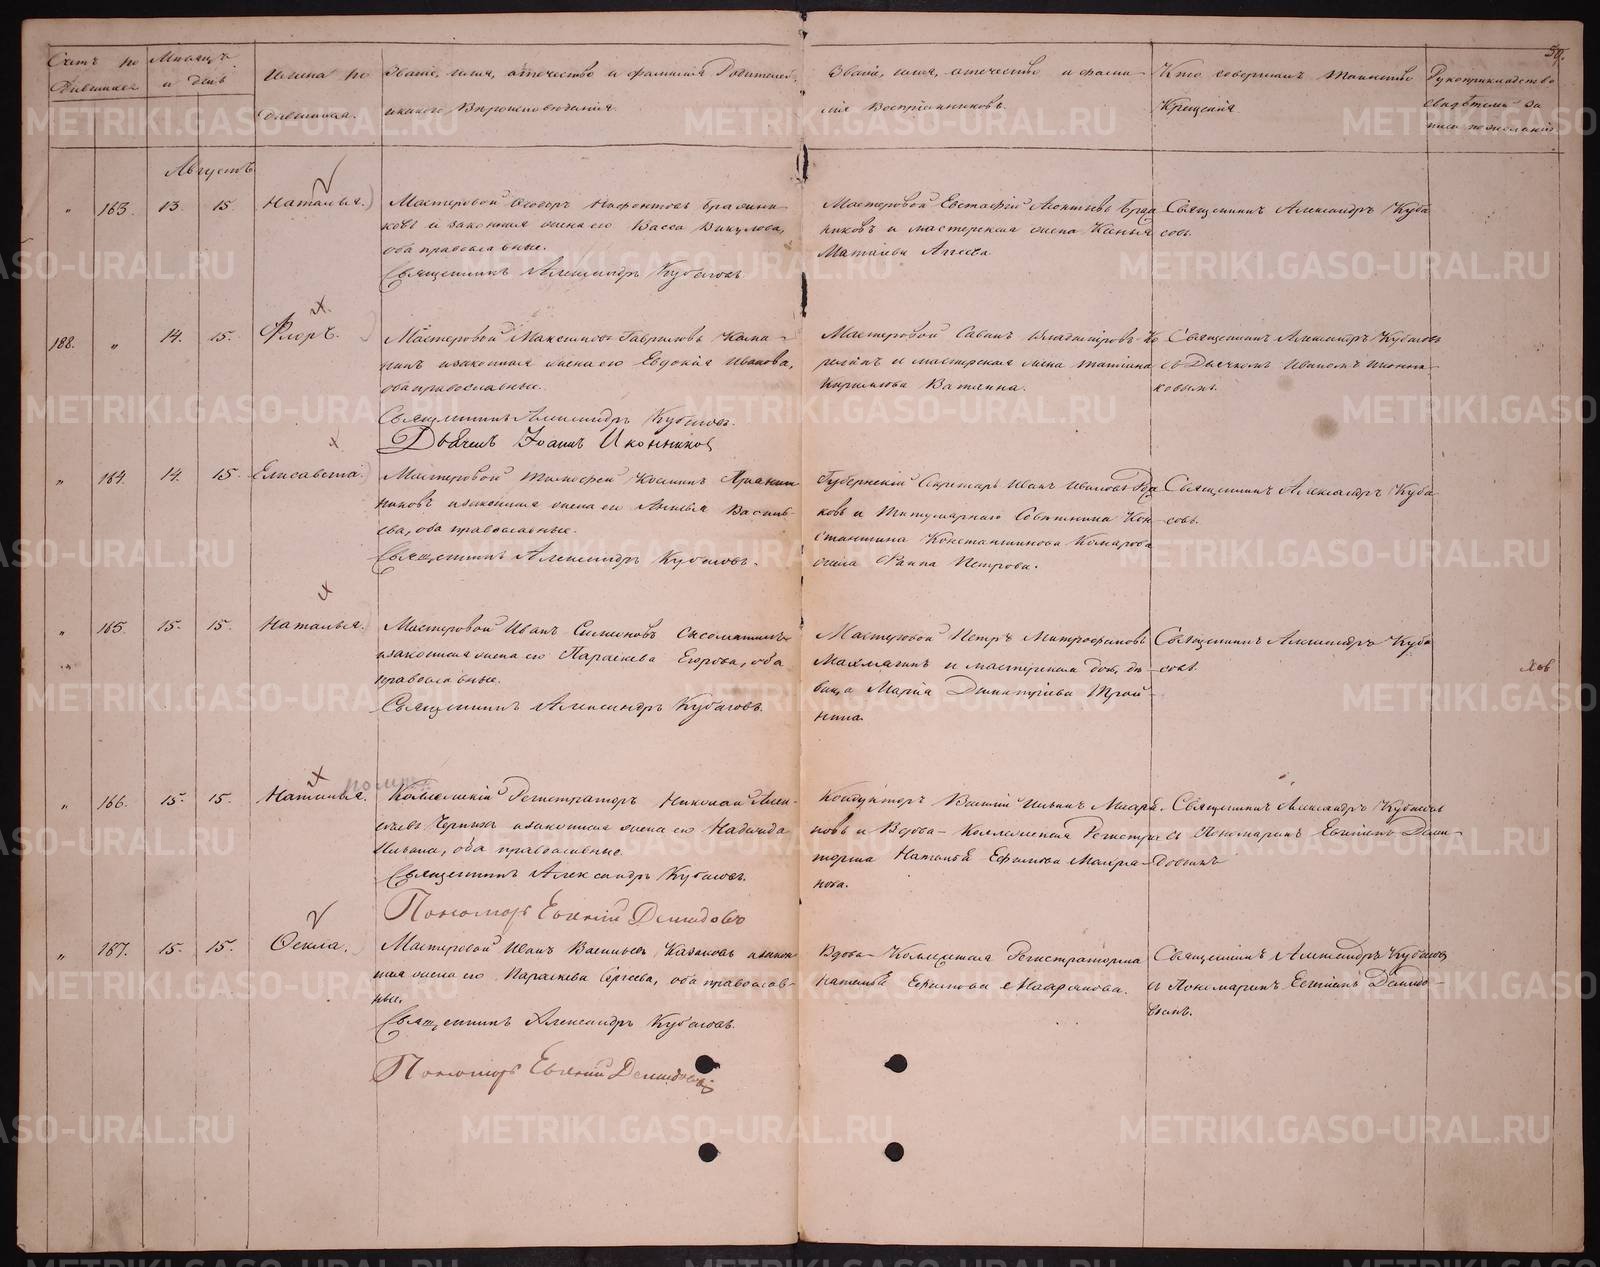 59.
Счетъ ро Мѣсяцъ
дившихся и день
Имена ро
дившихся.
Званіе, имя, отечество и фамилія Родителей,
и какого Вѣроисповѣданія.
Званіе, имя, отечество и фами-
лія Воспріемниковъ.
Кто совершилъ таинство
Крещенія.
Рукоприкладство
свидѣтелей за
писи по желанію.
Августъ
" 163. 13. 15. Наталья.
Мастеровой Ѳедоръ
ковъ и законная жена его Васса Викулова,
оба православные.
Священникъ Александръ Кубасовъ
Мастеровой Евстафій Леонтьевъ
никовъ и мастерская жена Ксенья
Матвѣева
Священникъ Александръ Куба
совъ.
188. " 14. 15. Флоръ.
Мастеровой Максимъ Гавриловъ
нинъ и законная жена его Евдокія Иванова,
оба православные.
Священникъ Александръ Кубасовъ.
Дьячекъ Іоаннъ Иконниковъ
Мастеровой Савинъ Владиміровъ
и мастерская жена Татіана
Кирилова Вяткина.
Священникъ Александръ Кубасовъ
съ Дьячкомъ Иваномъ Иконни-
ковымъ.
" 164. 14. 15. Елисавета.
Мастеровой Тимофей Козминъ
никовъ и законная жена его Анисья Василь-
ева, оба православные.
Священникъ Александръ Кубасовъ.
Губернскій Секретарь Иванъ Ивановъ
ковъ и Титулярнаго Совѣтника Кон-
стантина Константинова Комарова
жена Раиса Петрова.
Священникъ Александръ Куба
совъ.
" 165. 15. 15. Наталья.
Мастеровой Иванъ Симоновъ
и законная жена его Параскева Егорова, оба
православные.
Священникъ Александръ Кубасовъ.
Мастеровой Петръ Митрофановъ
и мастерская дочь, дѣ-
вица Марія Димитріева
нина.
Священникъ Александръ Куба
совъ.
" 166. 15. 15. Наталья.
Коллежскій Регистраторъ Николай Алек-
сѣевъ и законная жена его Надежда
Ильина, оба православные.
Священникъ Александръ Кубасовъ.
Пономарь Евгеній Демидовъ
Кондукторъ Василій Ильинъ
новъ и Вдова Коллежская Регистра-
торша Наталья Ефимова Маврiа-
нова.
Священникъ Александръ Кубасовъ
съ Пономаремъ Евгеніемъ Деми-
довымъ
" 167. 15. 15. Ѳекла.
Мастеровой Иванъ Васильевъ Казаковъ и закон-
ная жена его Параскева Сергѣева, оба православ-
ные.
Священникъ Александръ Кубасовъ.
Пономарь Евгеній Демидовъ
Вдова Коллежская Регистраторша
Наталья Ефимова Маврiанова.
Священникъ Александръ Кубасовъ
съ Пономаремъ Евгеніемъ Демидо-
вымъ.
METRIKI.GASO-URAL.RU